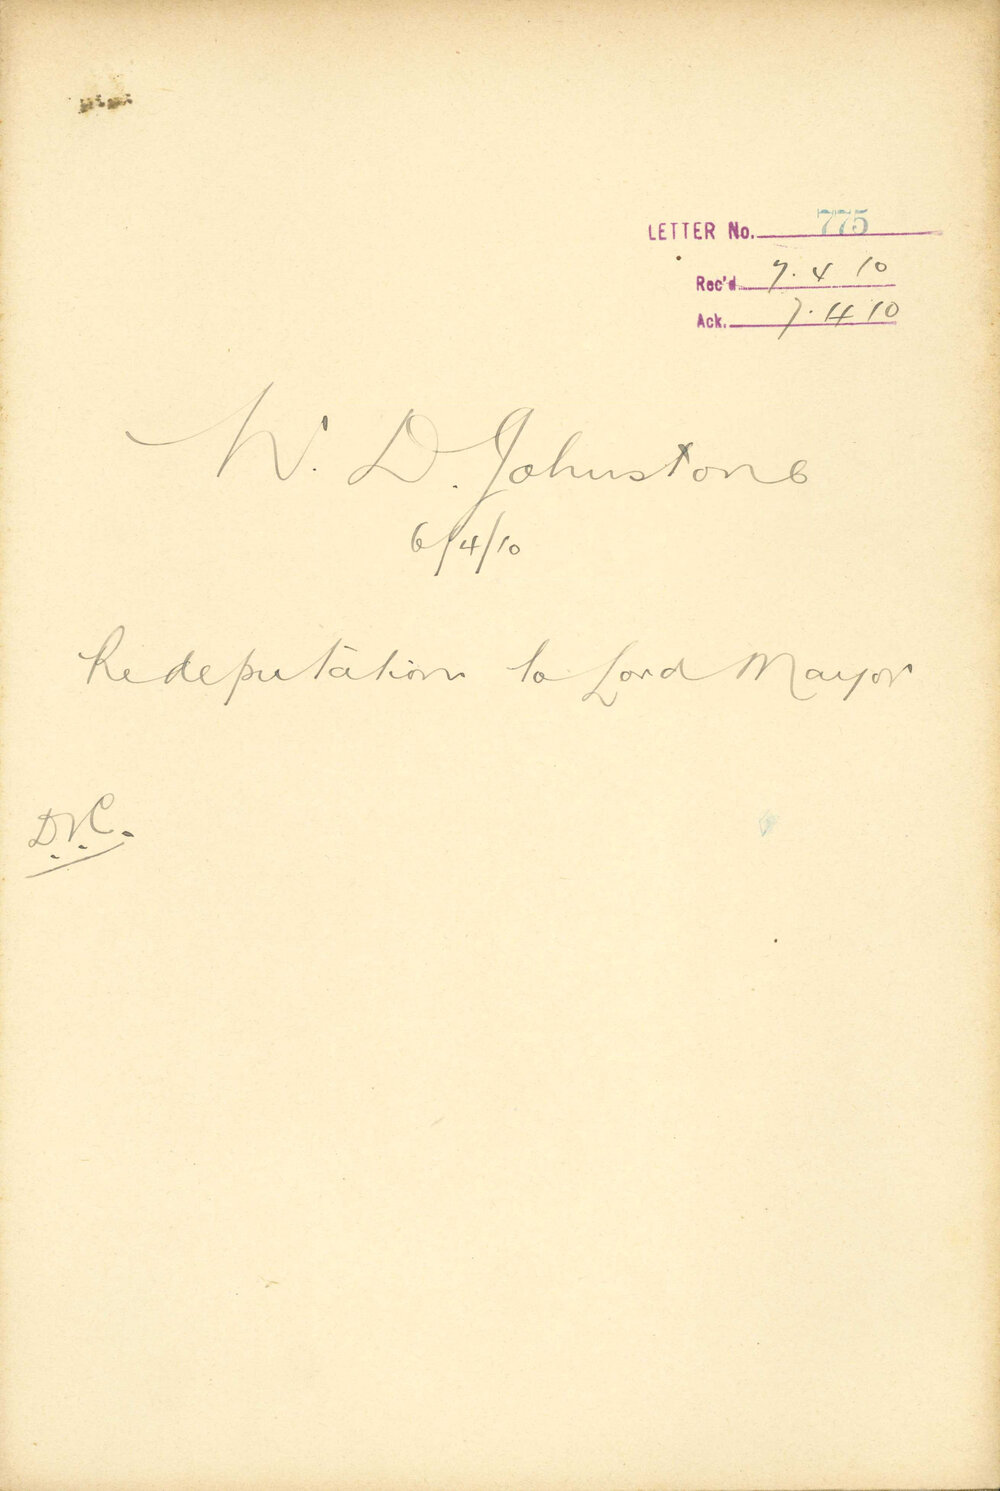 LETTER No. 775
Rec'd 7. 4 10
Ack. 7. 4 10
W. D. Johnstone
6/4/10
Re deputation to Lord Mayor